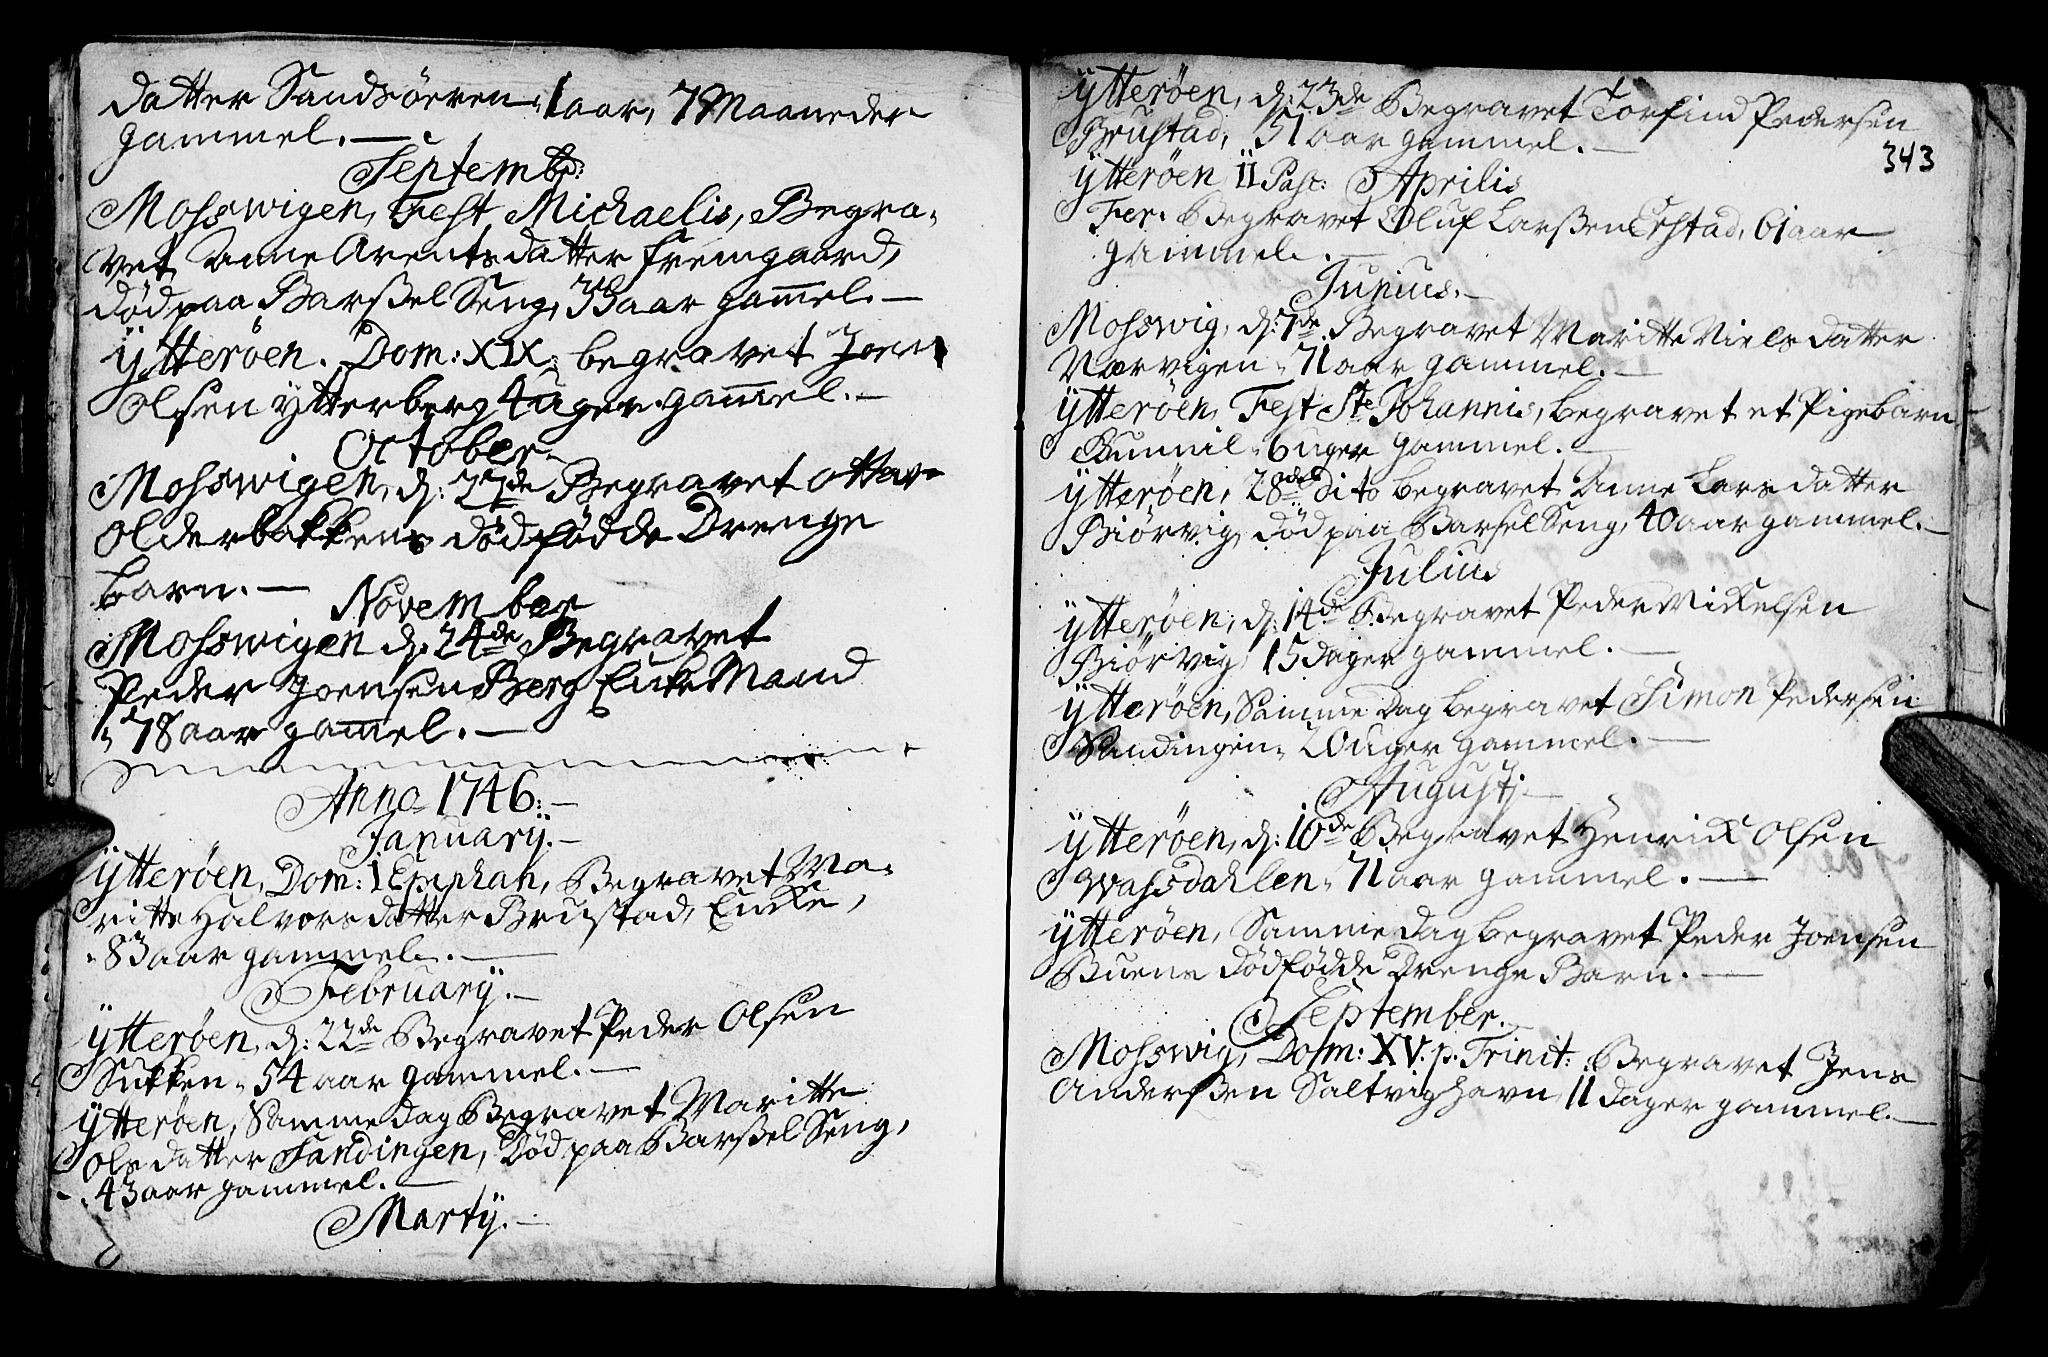 datter Sandsören, 1 aar, 7 Maaneder
gammel. —
Septembr:
Mohswigen, Fest Michaelis, Begra-
vet Anne Arentsdatter Fremgaard,
död paa Barßel Seng, 33 aar gam̄el. —
Ÿtteröen. Dom: XIX. begravet Joen
Olsen Ytterberg 4 uger gam̄el. —
October.
Mohswigen, d: 27de Begravet Ottar
Olderbakkens dödfödde Drenge
barn. —
November
Mohswigen d. 24de Begravet
Peder Joensen Berg Enke Mand
78 aar gam̄el. —
Anno 1746. —
Januarÿ. —
Ÿtteröen, Dom: 1 Epiphan, Begravet Ma-
ritte Halvorsdatter Brustad, Encke,
83 aar gammel. —
Februarÿ. —
Ÿtteröen, d: 22de Begravet Peder Olsen
Sukken, 54 aar gammel. —
Ÿtteröen, Samme dag Begravet Maritte
Olsdatter Sandingen, Död paa Barßel Seng,
43 aar gammel. —
Martÿ. —
Ÿtteröen, d: 23de Begravet Torfind Pedersen
Brustad, 51 aar gammel. —
343
Ÿtteröen II Pasc: Aprilis
Fer. Begravet Oluf Larßen 61 aar
gammel. —
Junius. —
Mohswig, d: 7de Begravet Maritte Nielsdatter
Nervigen, 71 aar gammel. —
Ÿtteröen, Fest Ste Johannis, begravet et Pigebarn
Gunnil, 6 uger gammel. —
Ÿtteröen, 28de dito begravet Anne Larsdatter
Biörvig, död paa Barsel Seng, 40 aar gammel. —
Julius
Ÿtteröen, d: 14de Begravet Peder Mickelsen
Biörvig, 15 dager gammel. —
Ÿtteröen, Samme Dag begravet Simon Pedersen
Sandingen, 20 uger gammel. —
Augustj —
Ÿtteröen, d: 10de Begravet Henrick Olsen
Wahsdahlen, 71 aar gammel. —
Ÿtteröen, Samme Dag begravet Peder Joensen
Buens dödfödde Drenge Barn. —
September.
Mohswig, Dohm: XV. p. Trinit: Begravet Jens
Anderßen Saltvighavn 11 dager gammel. —